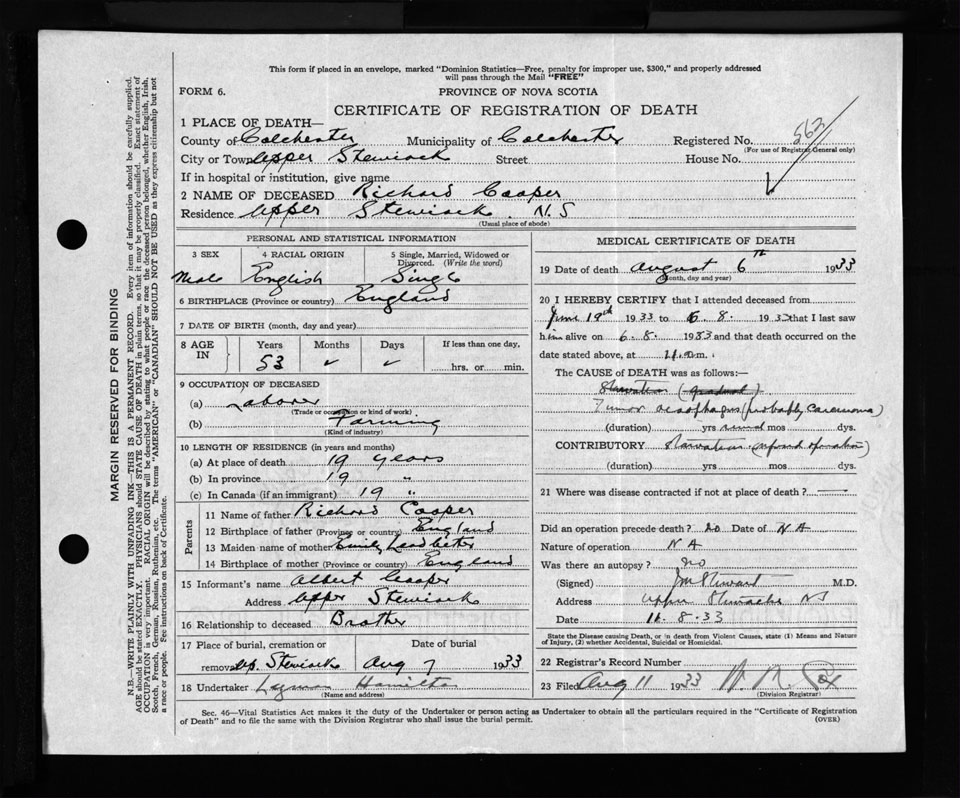 This form if placed in an envelope, marked "Dominion Statistics—Free, penalty for improper use, $300," and properly addressed
will pass through the Mail "FREE"
FORM 6. PROVINCE OF NOVA SCOTIA
CERTIFICATE OF REGISTRATION OF DEATH
1 PLACE OF DEATH—
County of Colchester Municipality of Colchester Registered No. 563
(For use of Registrar General only)
City or Town Upper Stewiack Street House No.
If in hospital or institution, give name
2 NAME OF DECEASED Richard Cooper
Residence Upper Stewiack N.S
(Usual place of abode)
PERSONAL AND STATISTICAL INFORMATION
3 SEX 4 RACIAL ORIGIN 5 Single, Married, Widowed or
Divorced. (Write the word)
Male English Single
6 BIRTHPLACE (Province or country) England
7 DATE OF BIRTH (month, day and year)
8 AGE IN Years Months Days If less than one day,
53 ✓ ✓ hrs. or min.
9 OCCUPATION OF DECEASED
(a) Laborer
(Trade or occupation or kind of work)
(b) Farming
(Kind of industry)
10 LENGTH OF RESIDENCE (in years and months)
(a) At place of death 19 years
(b) In province 19 "
(c) In Canada (if an immigrant) 19 "
Parents
11 Name of father Richard Cooper
12 Birthplace of father (Province or country) England
13 Maiden name of mother Emily Leadbeter
14 Birthplace of mother (Province or country) England
15 Informant's name Albert Cooper
Address Upper Stewiack
16 Relationship to deceased Brother
17 Place of burial, cremation or Date of burial
removal Up. Stewiack Aug 7 1933
18 Undertaker Lyman Hamilton
(Name and address)
MEDICAL CERTIFICATE OF DEATH
19 Date of death August 6th 1933
(Month, day and year)
20 I HEREBY CERTIFY that I attended deceased from
June 19th 1933 to 6.8. 1933 that I last saw
him alive on 6.8. 1933 and that death occurred on the
date stated above, at 11.a.m.
The CAUSE of DEATH was as follows:—
Starvation (gradual)
Tumor oesophagus (probably carcinoma)
(duration) yrs mos dys.
CONTRIBUTORY Starvation
(duration) yrs mos dys.
21 Where was disease contracted if not at place of death?
Did an operation precede death? no Date of NA
Nature of operation NA
Was there an autopsy? no
(Signed) M.D.
Address Upper Stewiacke NS
Date 11.8.33
State the Disease causing Death, or in death from Violent Causes, state (1) Means and Nature
of Injury, (2) whether Accidental, Suicidal or Homicidal.
22 Registrar's Record Number
23 Filed Aug 11 1933
(Division Registrar)
Sec. 46—Vital Statistics Act makes it the duty of the Undertaker or person acting as Undertaker to obtain all the particulars required in the "Certificate of Registration
of Death" and to file the same with the Division Registrar who shall issue the burial permit. (OVER)
MARGIN RESERVED FOR BINDING
N.B.—WRITE PLAINLY WITH UNFADING INK—THIS IS A PERMANENT RECORD. Every item of information should be carefully supplied.
AGE should be stated EXACTLY. PHYSICIANS should STATE CAUSE OF DEATH in plain terms, so that it may be properly classified. Exact statement of
OCCUPATION is very important. RACIAL ORIGIN will be described by stating to what people or race the deceased person belonged, whether English, Irish,
Scotch, French, German, Russian, Ruthenian, etc. The terms "AMERICAN" or "CANADIAN" SHOULD NOT BE USED as they express citizenship but not
a race or people. See instructions on back of Certificate.